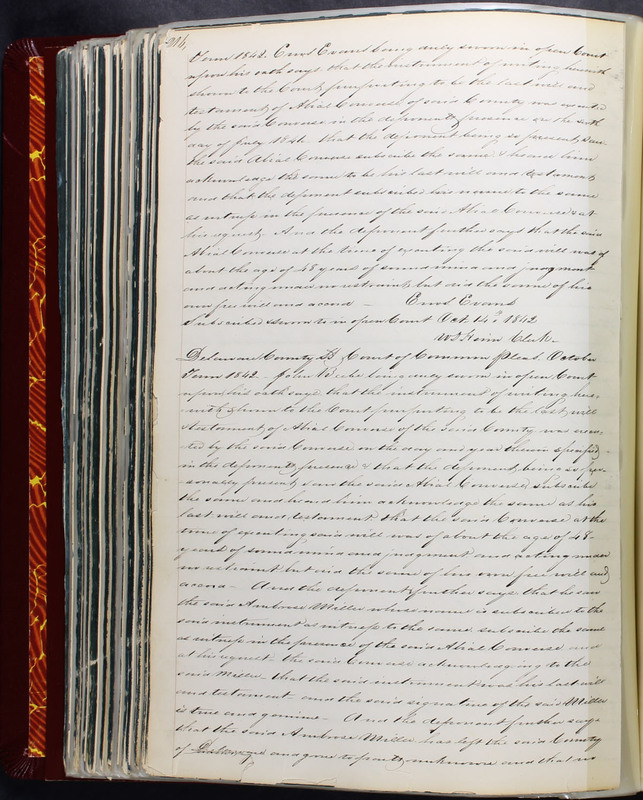 216,
Term 1842. Enos Evans being duly sworn in open Court
upon his oath says that the instrument of writing herewith
shown to the Court purporting to be the last will and
testament of Abial Converse of said County was executed
by the said Converse in the deponents presence on the
day of July 184 that the deponent being so present, saw
the said Abial Converse subscribe the same & heard him
acknowledge the same to be his last will and testament
and that the deponent subscribed his name to the same
as witness in the presence of the said Abial Converse & at
his request. And the deponent further says that the said
Abial Converse at the time of executing the said will was of
about the age of 48 years of sound mind and judgment
and acting under no restraint but did the same of his
own free will and accord — Enos Evans
Subscribed & sworn to in open Court Oct. 14th 1842
Clerk
Delaware County Ss Court of Common Pleas October
Term 1842 — John being duly sworn in open Court
upon his oath says that the instrument of writing here
with shown to the Court purporting to be the last will
& testament of Abial Converse of the said County was execu
ted by the said Converse on the day and year therein specified
in the deponents presence & that the deponent being so per
sonally present, saw the said Abial Converse subscribe
the same and heard him acknowledge the same as his
last will and testament that the said Converse at the
time of executing said will was of about the age of 48
years of sound mind and judgement and acting under
no restraint but did the same of his own free will and
accord — And the deponent further says that he saw
the said Ambrose Miller whose name is subscribed to the
said instrument as witness to the same subscribe the same
as witness in the presence of the said Abial Converse and
at his request — the said Converse acknowledging to the
said Miller that the said instrument was his last will
and testament and the said signature of the said Miller
is true and genuine — And the deponent further says
that the said Ambrose Miller has left the said County
of Delaware and gone to parts unknown and that no